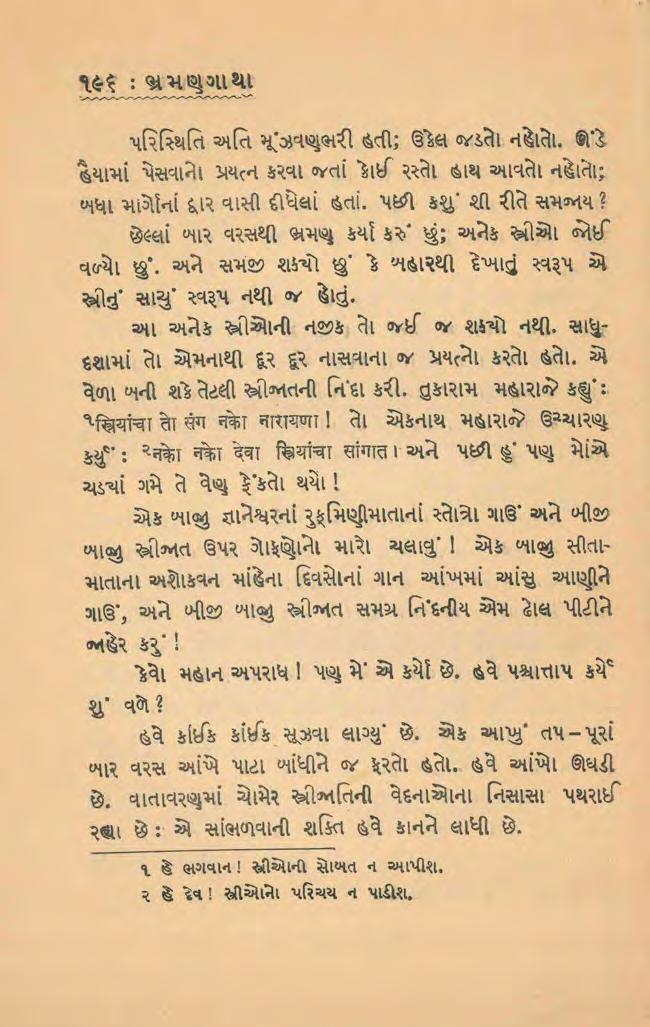 ૧૯૬ : ભ્રમણગાથા
પરિસ્થિતિ અતિ મૂંઝવણભરી હતી; ઉકેલ જડતો નહોતો. ઊંડે
હૈયામાં પેસવાનો પ્રયત્ન કરવા જતાં કોઈ રસ્તો હાથ આવતો નહોતો;
બધા માર્ગોનાં દ્વાર વાસી દીધેલાં હતાં. પછી કશું શી રીતે સમજાય ?
છેલ્લાં બાર વરસથી ભ્રમણ કર્યા કરું છું; અનેક સ્ત્રીઓ જોઈ
વળ્યો છું. અને સમજી શક્યો છું કે બહારથી દેખાતું સ્વરૂપ એ
સ્ત્રીનું સાચું સ્વરૂપ નથી જ હોતું.
આ અનેક સ્ત્રીઓની નજીક તો જઈ જ શક્યો નથી. સાધુ-
દશામાં તો એમનાથી દૂર દૂર નાસવાના જ પ્રયત્નો કરતો હતો. એ
વેળા બની શકે તેટલી સ્ત્રીજાતની નિંદા કરી. તુકારામ મહારાજે કહ્યું :
૧સ્ત્રિયાંચા તો संग નકો નારાયણા ! તો એકનાથ મહારાજે ઉચ્ચારણ
કર્યું : ૨નકો નકો देवा સ્ત્રિયાંચા સાંગાત। અને પછી હું પણ મોંએ
ચડ્યાં ગમે તે વેણ ફેંકતો થયો !
એક બાજુ જ્ઞાનેશ્વરનાં રુક્મિણીમાતાનાં સ્તોત્રા ગાઉં અને બીજી
બાજુ સ્ત્રીજાત ઉપર ગોફણોનો મારો ચલાવું ! એક બાજુ સીતા-
માતાના અશોકવન માંહેના દિવસોનાં ગાન આંખમાં આંસુ આણીને
ગાઉં, અને બીજી બાજુ સ્ત્રીજાત સમગ્ર નિંદનીય એમ ઢોલ પીટીને
જાહેર કરું !
કેવો મહાન અપરાધ ! પણ મેં એ કર્યો છે. હવે પશ્ચાત્તાપ કર્યે
શું વળે ?
હવે કાંઈક કાંઈક સૂઝવા લાગ્યું છે. એક આખું તપ – પૂરાં
બાર વરસ આંખે પાટા બાંધીને જ ફરતો હતો. હવે આંખો ઊઘડી
છે. વાતાવરણમાં ચોમેર સ્ત્રીજાતિની વેદનાઓના નિસાસા પથરાઈ
રહ્યા છે : એ સાંભળવાની શક્તિ હવે કાનને લાધી છે.
૧ હે ભગવાન ! સ્ત્રીઓની સોબત ન આપીશ.
૨ હે દેવ ! સ્ત્રીઓનો પરિચય ન પાડીશ.